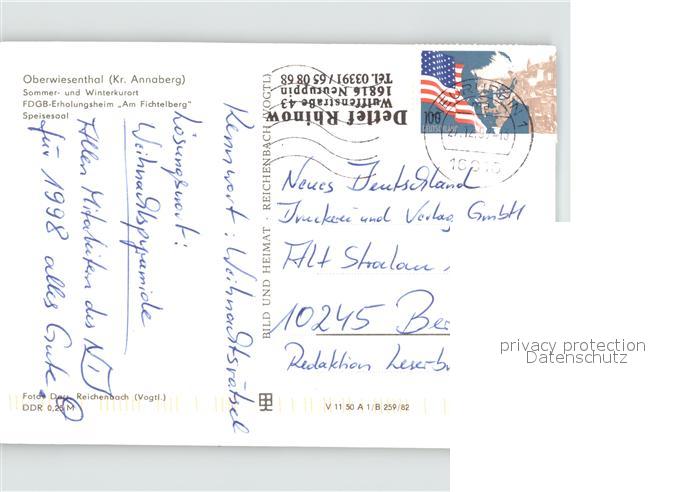 Oberwiesenthal (Kr. Annaberg)
Sommer- und Winterkurort
FDGB-Erholungsheim „Am Fichtelberg"
Speisesaal
Kennwort: Weihnachtsrätsel
Lösungswort:
Weihnachtspyramide
Allen Mitarbeitern des ND
für 1998 alles Gute.
Detlef Rhinow
Wulffenstraße 43
16816 Neuruppin
Tel. 03391/65 08 68
BILD UND HEIMAT · REICHENBACH (VOGTL)
100
Neues Deutschland
Druckerei und Verlag GmbH
Alt Stralau
10245
Redaktion
privacy protection
Datenschutz
Foto: Darr, Reichenbach (Vogtl.)
DDR 0,25 M
V 11 50 A 1/B 259/82